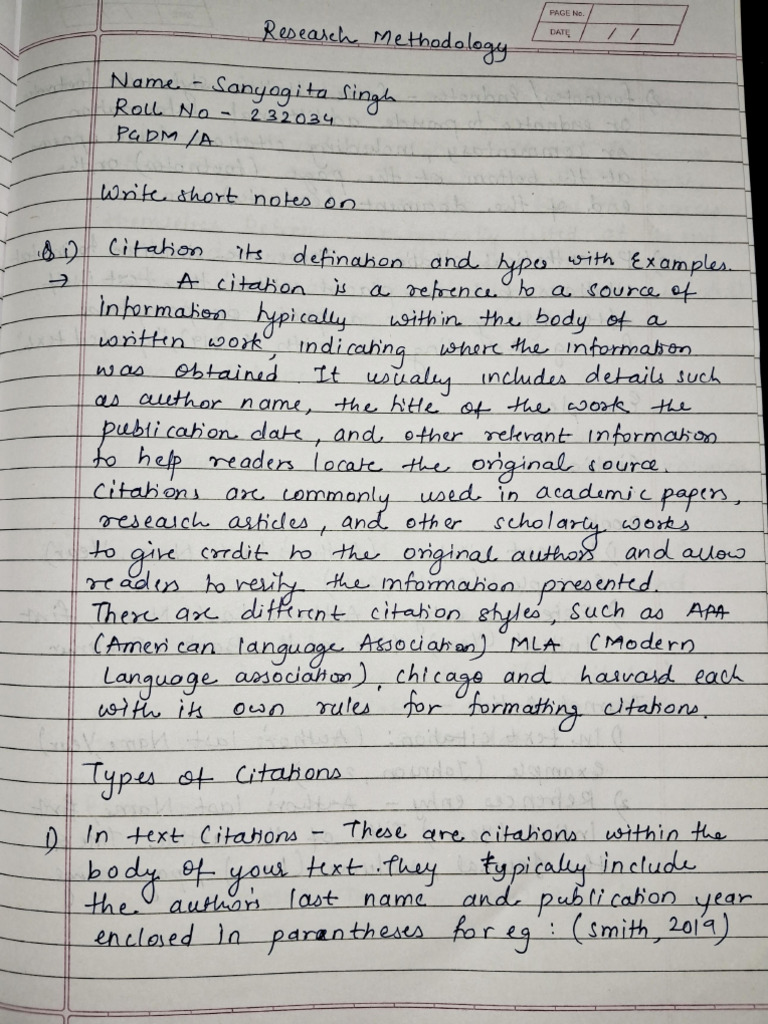 PAGE No.
DATE / /
Research Methodology
Name - Sanyogita Singh
Roll No - 232034
PGDM /A
Write short notes on
Q 1) Citation its defination and types with Examples.
→ A citation is a refrence to a source of
information typically within the body of a
written work, indicating where the information
was obtained. It usualey includes details such
as author name, the title of the work the
publication date, and other relevant information
to help readers locate the original source.
Citations are commonly used in academic papers,
research articles, and other scholarly works
to give credit to the original authors and allow
readers to verify the information presented.
There are different citation styles, such as APA
(American language Association) MLA (Modern
Language association), chicago and harvard each
with its own rules for formatting citations.
Types of Citations
1) In text Citations - These are citations within the
body of your text. They typically include
the author's last name and publication year
enclosed in parantheses for eg : (smith, 2019)